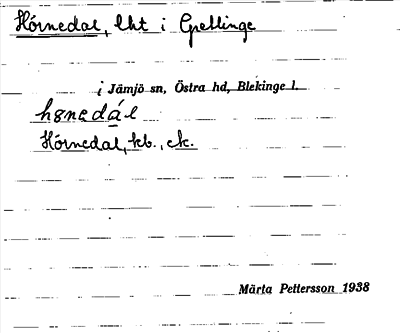 Hörnedal, lht i Gellinge
i Jämjö sn, Östra hd, Blekinge l.
Hörnedal, kb., ek.
Märta Pettersson 1938